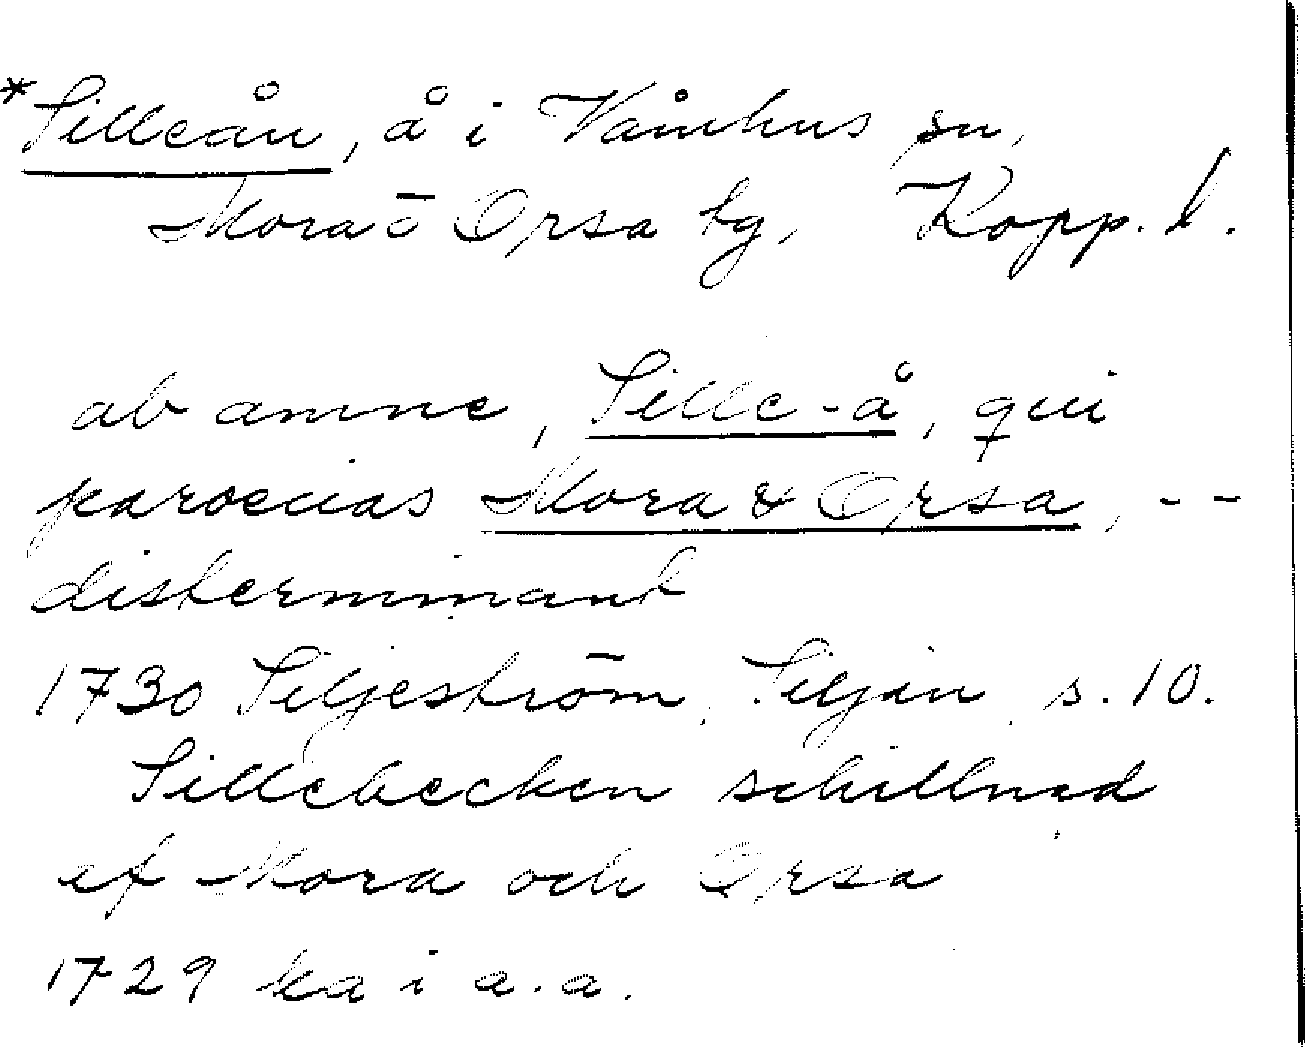 *Silleån, å i Våmhus sn,
Mora o Orsa tg, Kopp. l.
ab amne, Sille-å, qui
paroecias Mora & Orsa, --
disterminant
1730 Siljeström, Siljan s. 10.
Sillebecken schillnad
af Mora och Orsa
1729 ka i a.a.